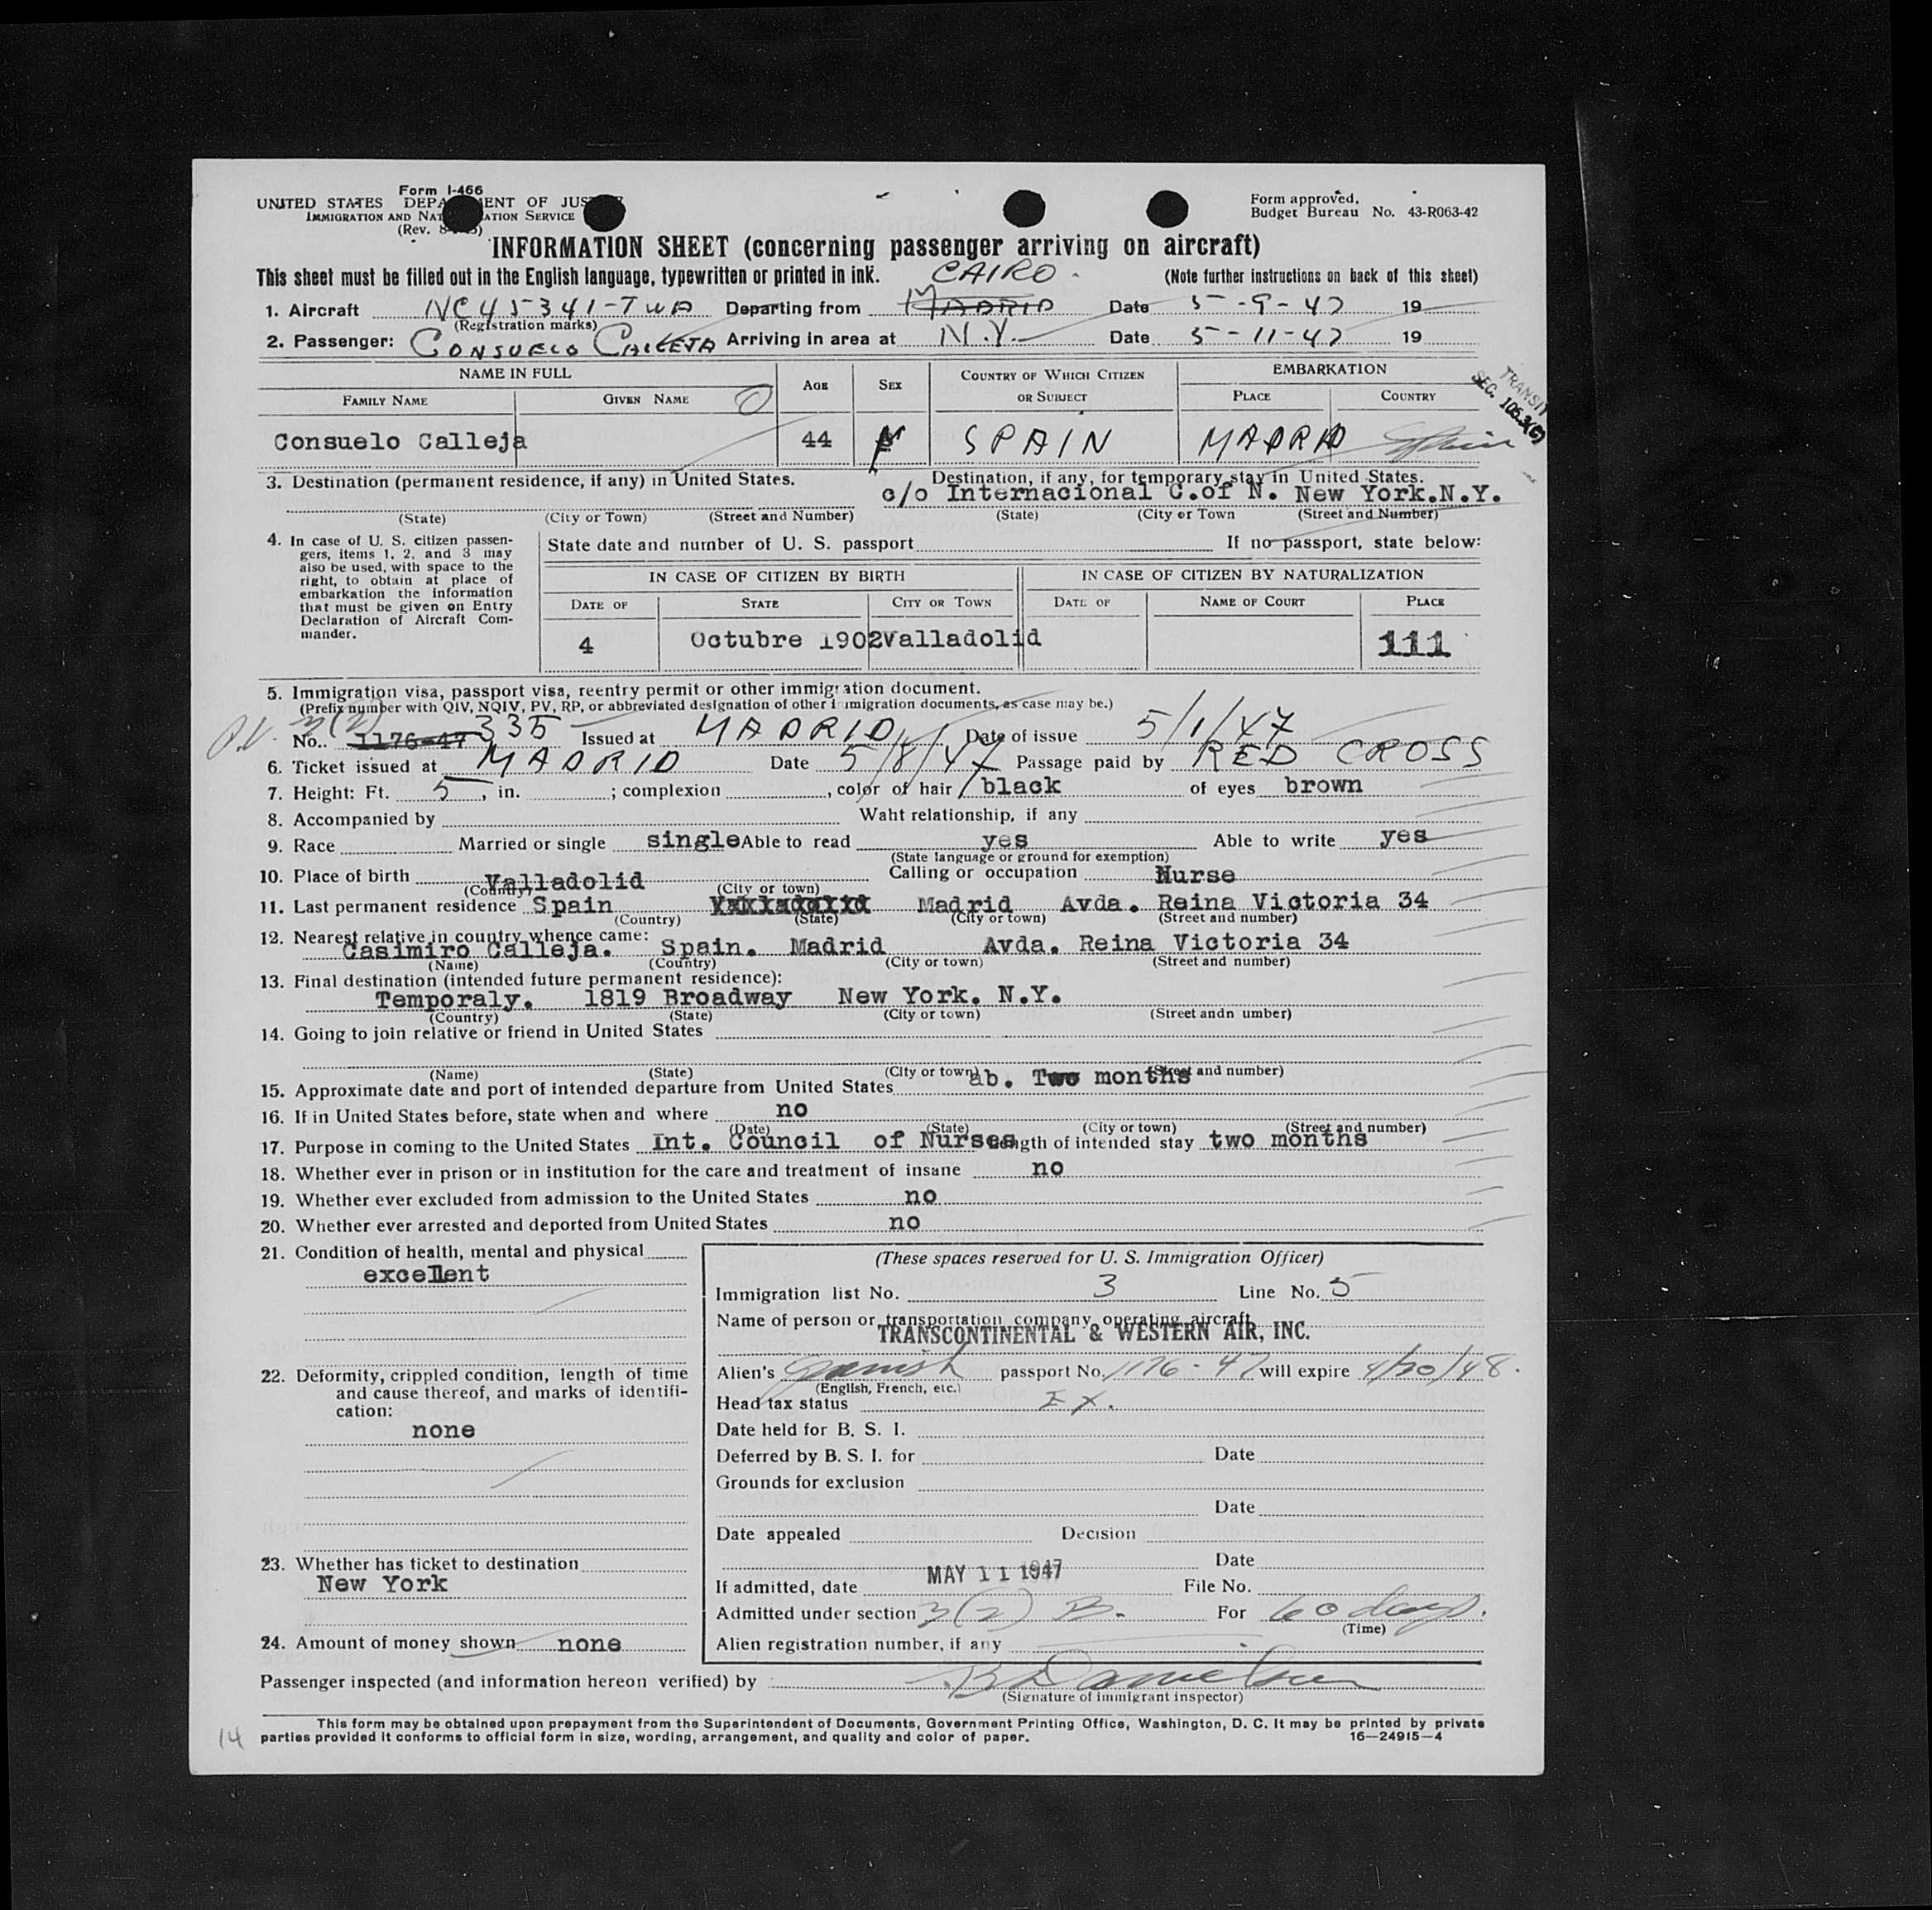 Form I-466
UNITED STATES DEPA ENT OF JUS
IMMIGRATION AND NAT ATION SERVICE
(Rev.
Form approved.
Budget Bureau No. 43-R063-42
INFORMATION SHEET (concerning passenger arriving on aircraft)
This sheet must be filled out in the English language, typewritten or printed in ink. CAIRO (Note further instructions on back of this sheet)
1. Aircraft NC45341-TWA Departing from MADRID Date 5-9-47 19
(Registration marks)
2. Passenger: CONSUELO CALLEJA Arriving in area at N.Y. Date 5-11-47 19
NAME IN FULL AGE SEX COUNTRY OF WHICH CITIZEN OR SUBJECT EMBARKATION
FAMILY NAME GIVEN NAME PLACE COUNTRY
TRANSIT
SEC. 106.3(6)
Consuelo Calleja 44 SPAIN MADRID Spain
3. Destination (permanent residence, if any) in United States. Destination, if any, for temporary stay in United States.
c/o Internacional C.of N. New York.N.Y.
(State) (City or Town) (Street and Number) (State) (City or Town (Street and Number)
4. In case of U. S. citizen passengers, items 1, 2, and 3 may also be used, with space to the right, to obtain at place of embarkation the information that must be given on Entry Declaration of Aircraft Commander.
State date and number of U. S. passport If no passport, state below:
IN CASE OF CITIZEN BY BIRTH IN CASE OF CITIZEN BY NATURALIZATION
DATE OF STATE CITY OR TOWN DATE OF NAME OF COURT PLACE
4 Octubre 1902 Valladolid 111
5. Immigration visa, passport visa, reentry permit or other immigration document.
(Prefix number with QIV, NQIV, PV, RP, or abbreviated designation of other immigration documents, as case may be.)
P.V. 3(2)
No. 1176-47 335 Issued at MADRID Date of issue 5/1/47
6. Ticket issued at MADRID Date 5/8/47 Passage paid by RED CROSS
7. Height: Ft. 5, in. ; complexion , color of hair black of eyes brown
8. Accompanied by Waht relationship, if any
9. Race Married or single single Able to read yes Able to write yes
(State language or ground for exemption)
10. Place of birth Valladolid Calling or occupation Nurse
(Country) (City or town)
11. Last permanent residence Spain Valladolid Madrid Avda. Reina Victoria 34
(Country) (State) (City or town) (Street and number)
12. Nearest relative in country whence came:
Casimiro Calleja. Spain. Madrid Avda. Reina Victoria 34
(Name) (Country) (City or town) (Street and number)
13. Final destination (intended future permanent residence):
Temporaly. 1819 Broadway New York. N.Y.
(Country) (State) (City or town) (Street andn umber)
14. Going to join relative or friend in United States
(Name) (State) (City or town) (Street and number)
15. Approximate date and port of intended departure from United States ab. Two months
16. If in United States before, state when and where no
(Date) (State) (City or town) (Street and number)
17. Purpose in coming to the United States Int. Council of Nurses Length of intended stay two months
18. Whether ever in prison or in institution for the care and treatment of insane no
19. Whether ever excluded from admission to the United States no
20. Whether ever arrested and deported from United States no
21. Condition of health, mental and physical
excellent
22. Deformity, crippled condition, length of time and cause thereof, and marks of identification:
none
23. Whether has ticket to destination
New York
24. Amount of money shown none
(These spaces reserved for U. S. Immigration Officer)
Immigration list No. 3 Line No. 5
Name of person or transportation company operating aircraft
TRANSCONTINENTAL & WESTERN AIR, INC.
Alien's Spanish passport No. 1176-47 will expire 4/30/48.
(English, French, etc.)
Head tax status EX.
Date held for B. S. I.
Deferred by B. S. I. for Date
Grounds for exclusion
Date
Date appealed Decision
Date
If admitted, date MAY 11 1947 File No.
Admitted under section 3(2) B. For 60 days.
(Time)
Alien registration number, if any
Passenger inspected (and information hereon verified) by
(Signature of immigrant inspector)
This form may be obtained upon prepayment from the Superintendent of Documents, Government Printing Office, Washington, D. C. It may be printed by private
parties provided it conforms to official form in size, wording, arrangement, and quality and color of paper. 16—24915—4
14